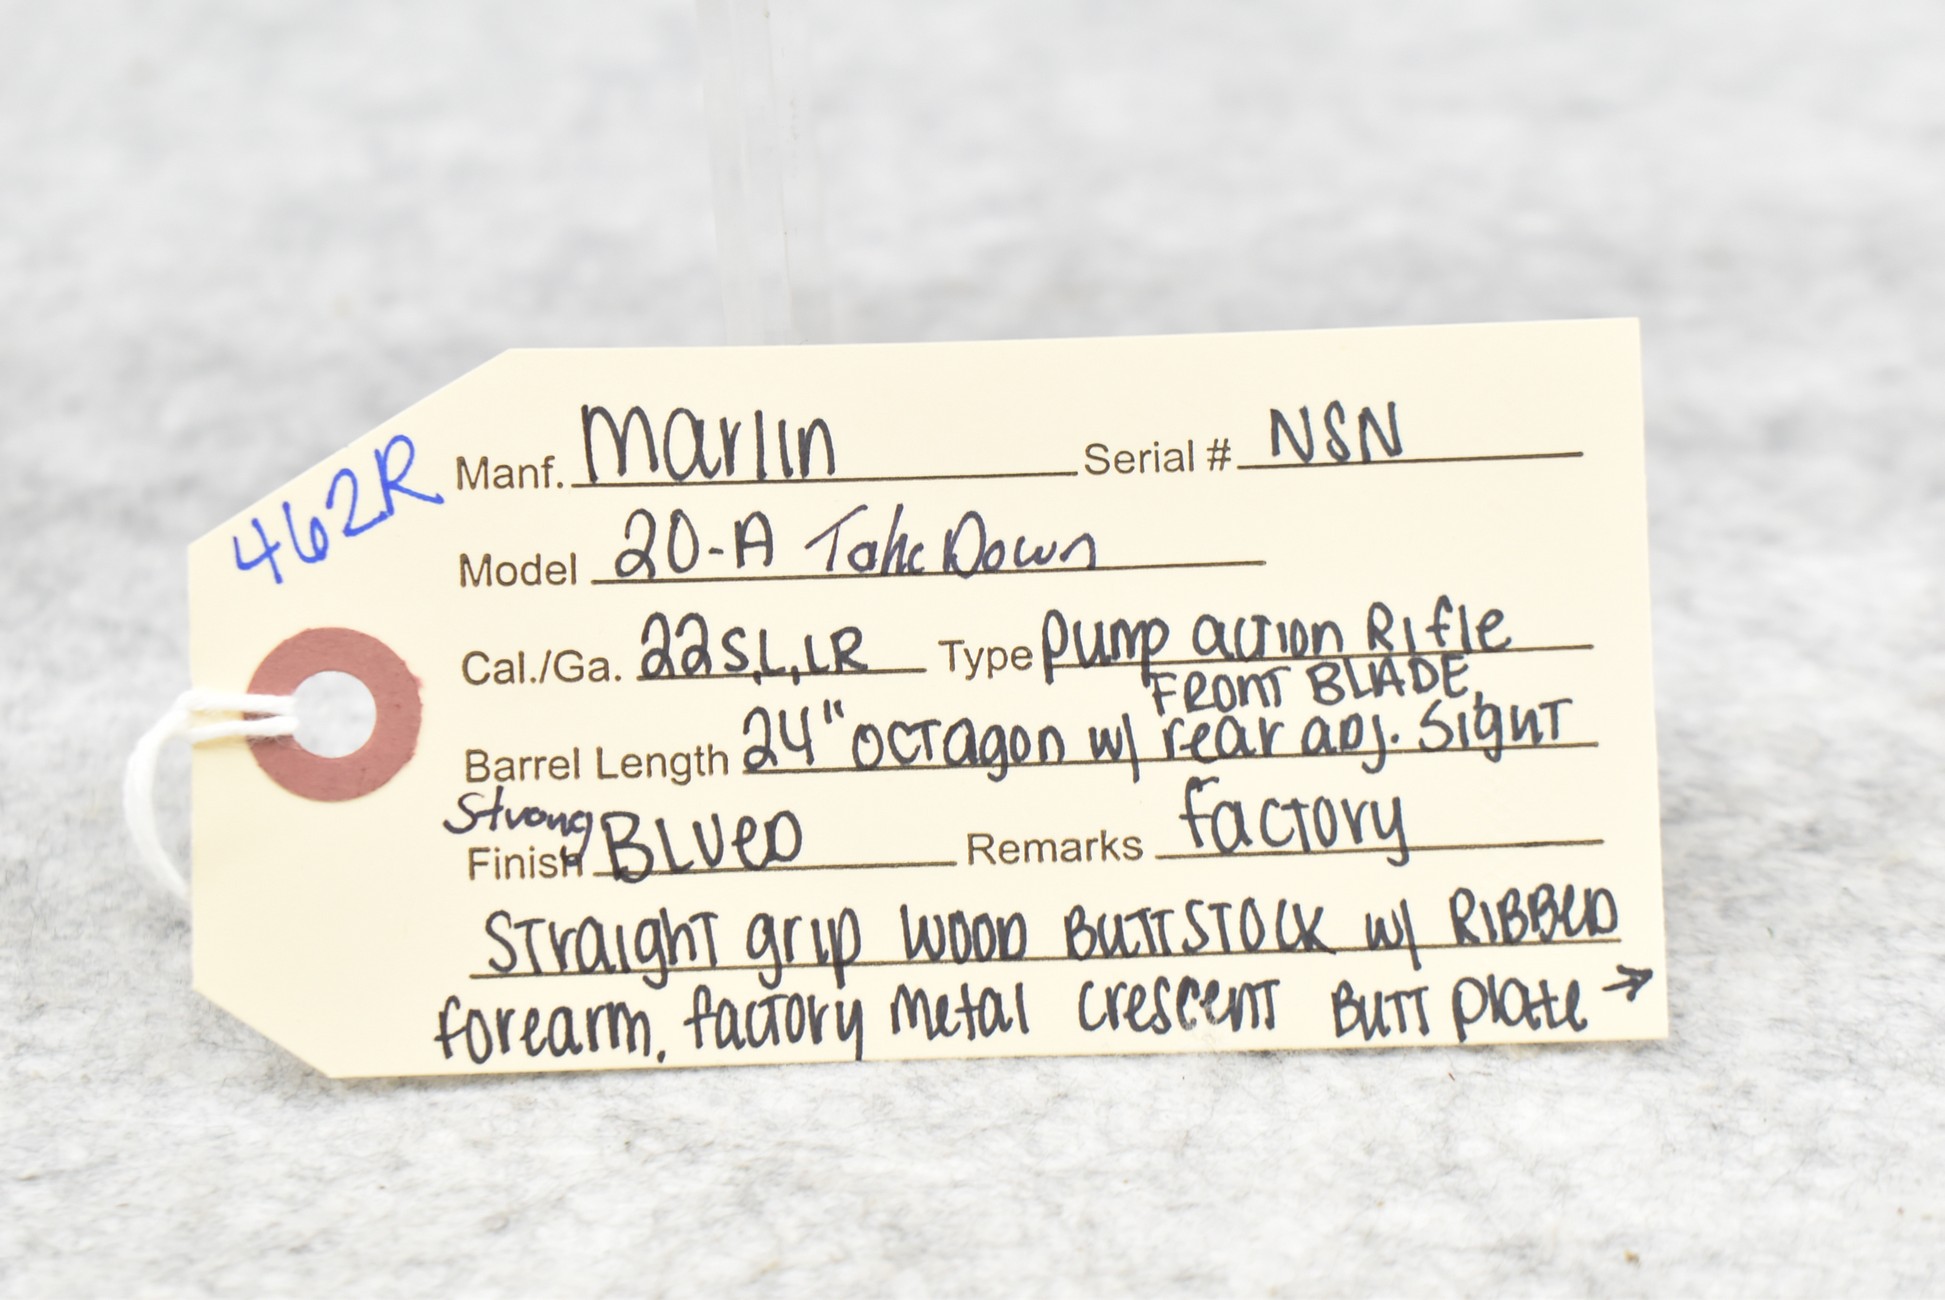 462R
Manf. Marlin Serial # NSN
Model 20-A Take Down
Cal./Ga. 22 S, L, LR Type Pump action Rifle
FRONT BLADE,
Barrel Length 24" octagon w/ rear adj. Sight
Strong
Finish BLUED Remarks factory
Straight grip wood BUTTSTOCK w/ RIBBED
forearm. factory metal crescent Butt plate →